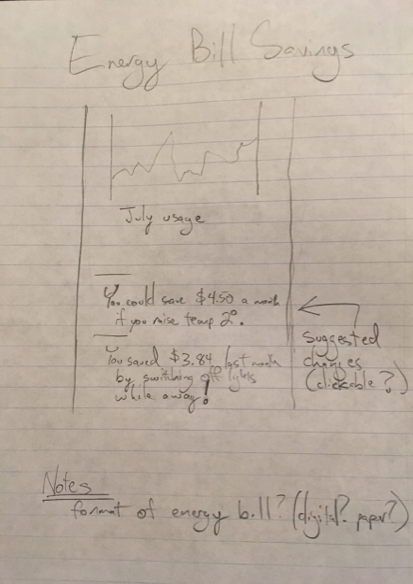 Energy Bill Savings
July usage
You could save $4.50 a month
if you raise temp 2°.
You saved $3.84 last month
by switching off lights
while away!
suggested
changes
(clickable?)
Notes
format of energy bill? (digital? paper?)